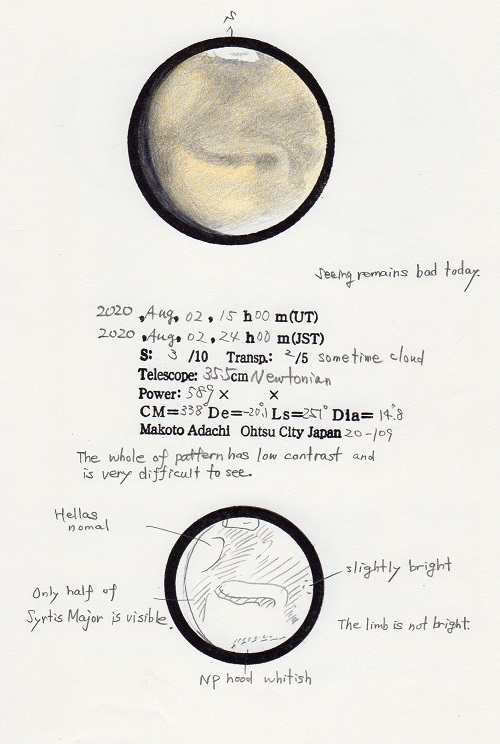 S
Seeing remains bad today.
2020, Aug, 02, 15 h 00 m(UT)
2020, Aug, 02, 24 h 00 m(JST)
S: 3 /10 Transp.: 2/5 sometime cloud
Telescope: 355cm Newtonian
Power: 589 × ×
CM=338° De=-20.1° Ls=251° Dia= 14."8
Makoto Adachi Ohtsu City Japan 20-109
The whole of pattern has low contrast and
is very difficult to see.
Hellas
nomal
slightly bright
Only half of
Syrtis Major is visible.
The limb is not bright.
NP hood whitish